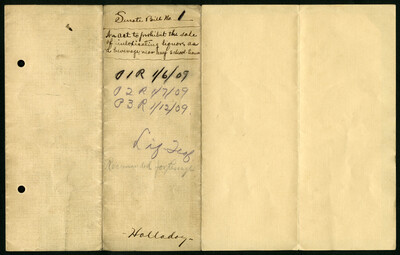 Senate Bill No. 1
An act to prohibit the sale
of intoxicating liquors as
a beverage near any school house
P 1 R 1/6/09
P 2 R 1/7/09
P 3 R 1/12/09
Recommended for
- Holladay -